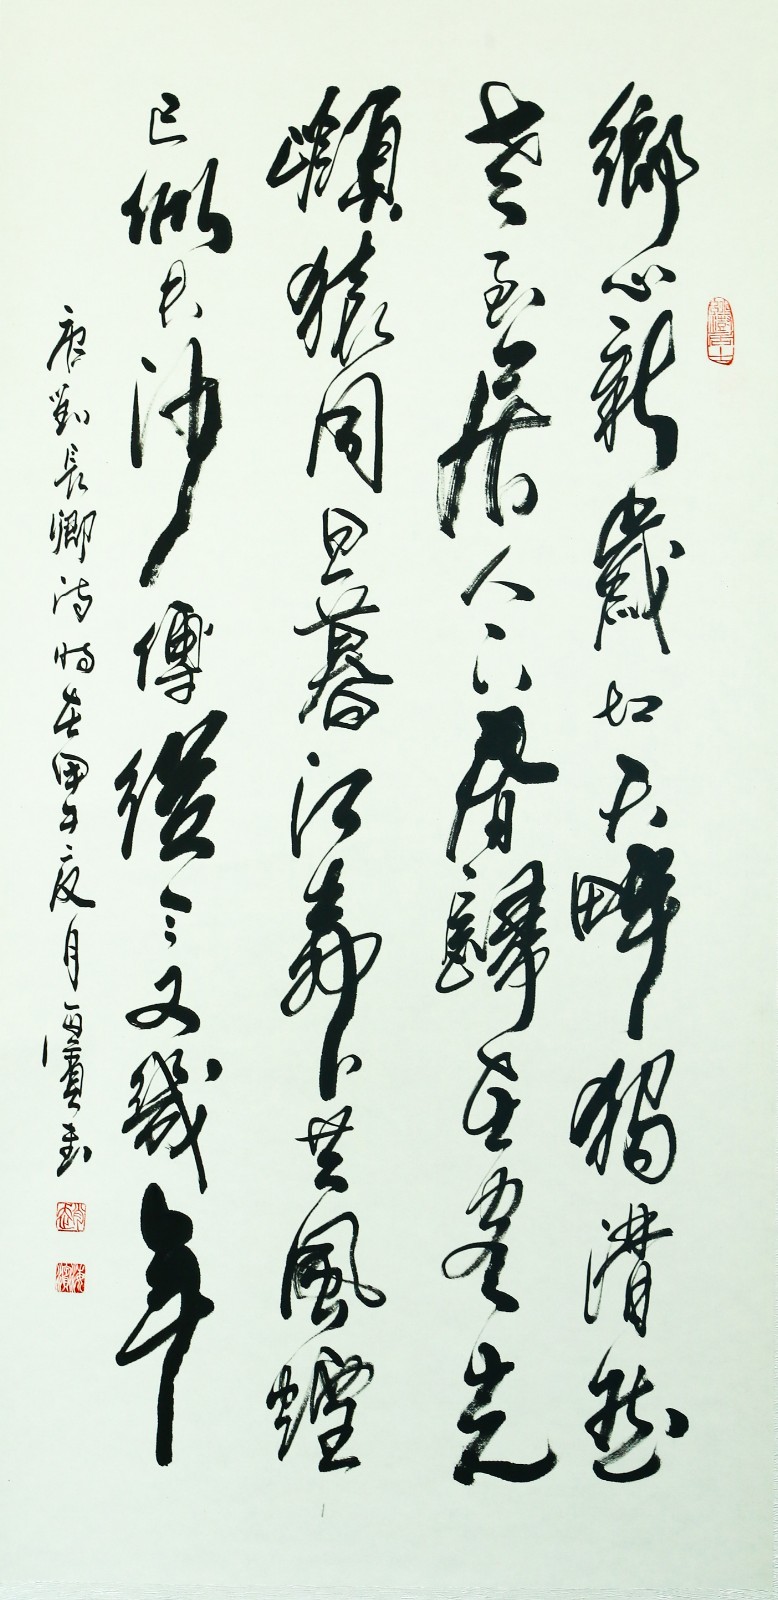 鄉心新歲切天畔獨潸然
老至居人下春歸在客先
嶺猿同旦暮江柳共風煙
已似長沙傅從今又幾年
唐劉長卿詩時在甲午夏月書